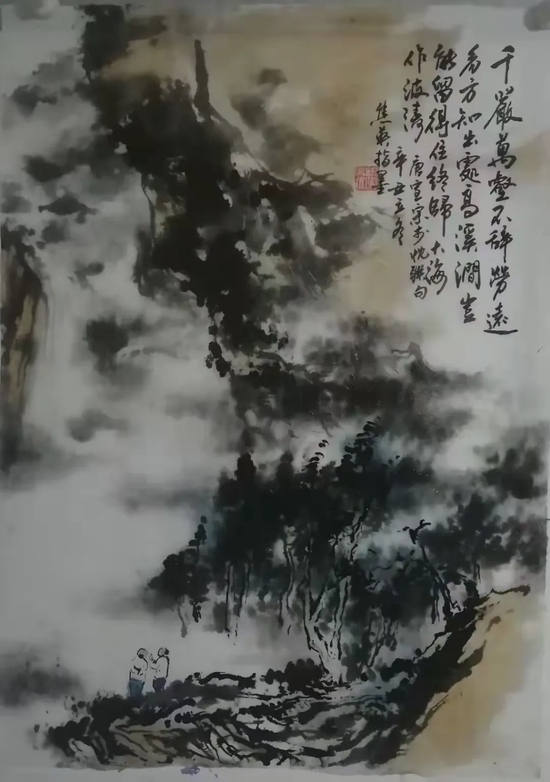 千巖萬壑不辭勞遠
看方知出處高溪澗豈
能留得住終歸大海
作波濤
唐宣宗李忱聯句
辛丑立冬
焦英指墨